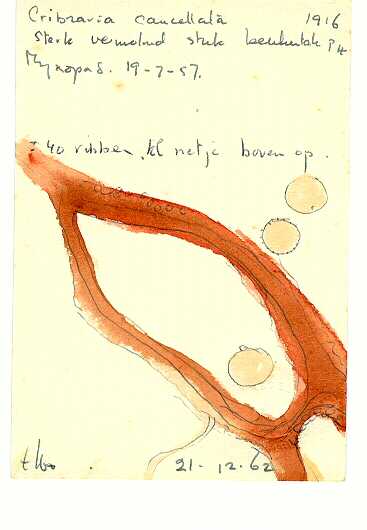 Cribraria cancellata 1916
Sterk vermolmd stuk beukentak P4
Myxopad. 19-7-57.
± 40 ribben, kl netje boven op.
21-12-62